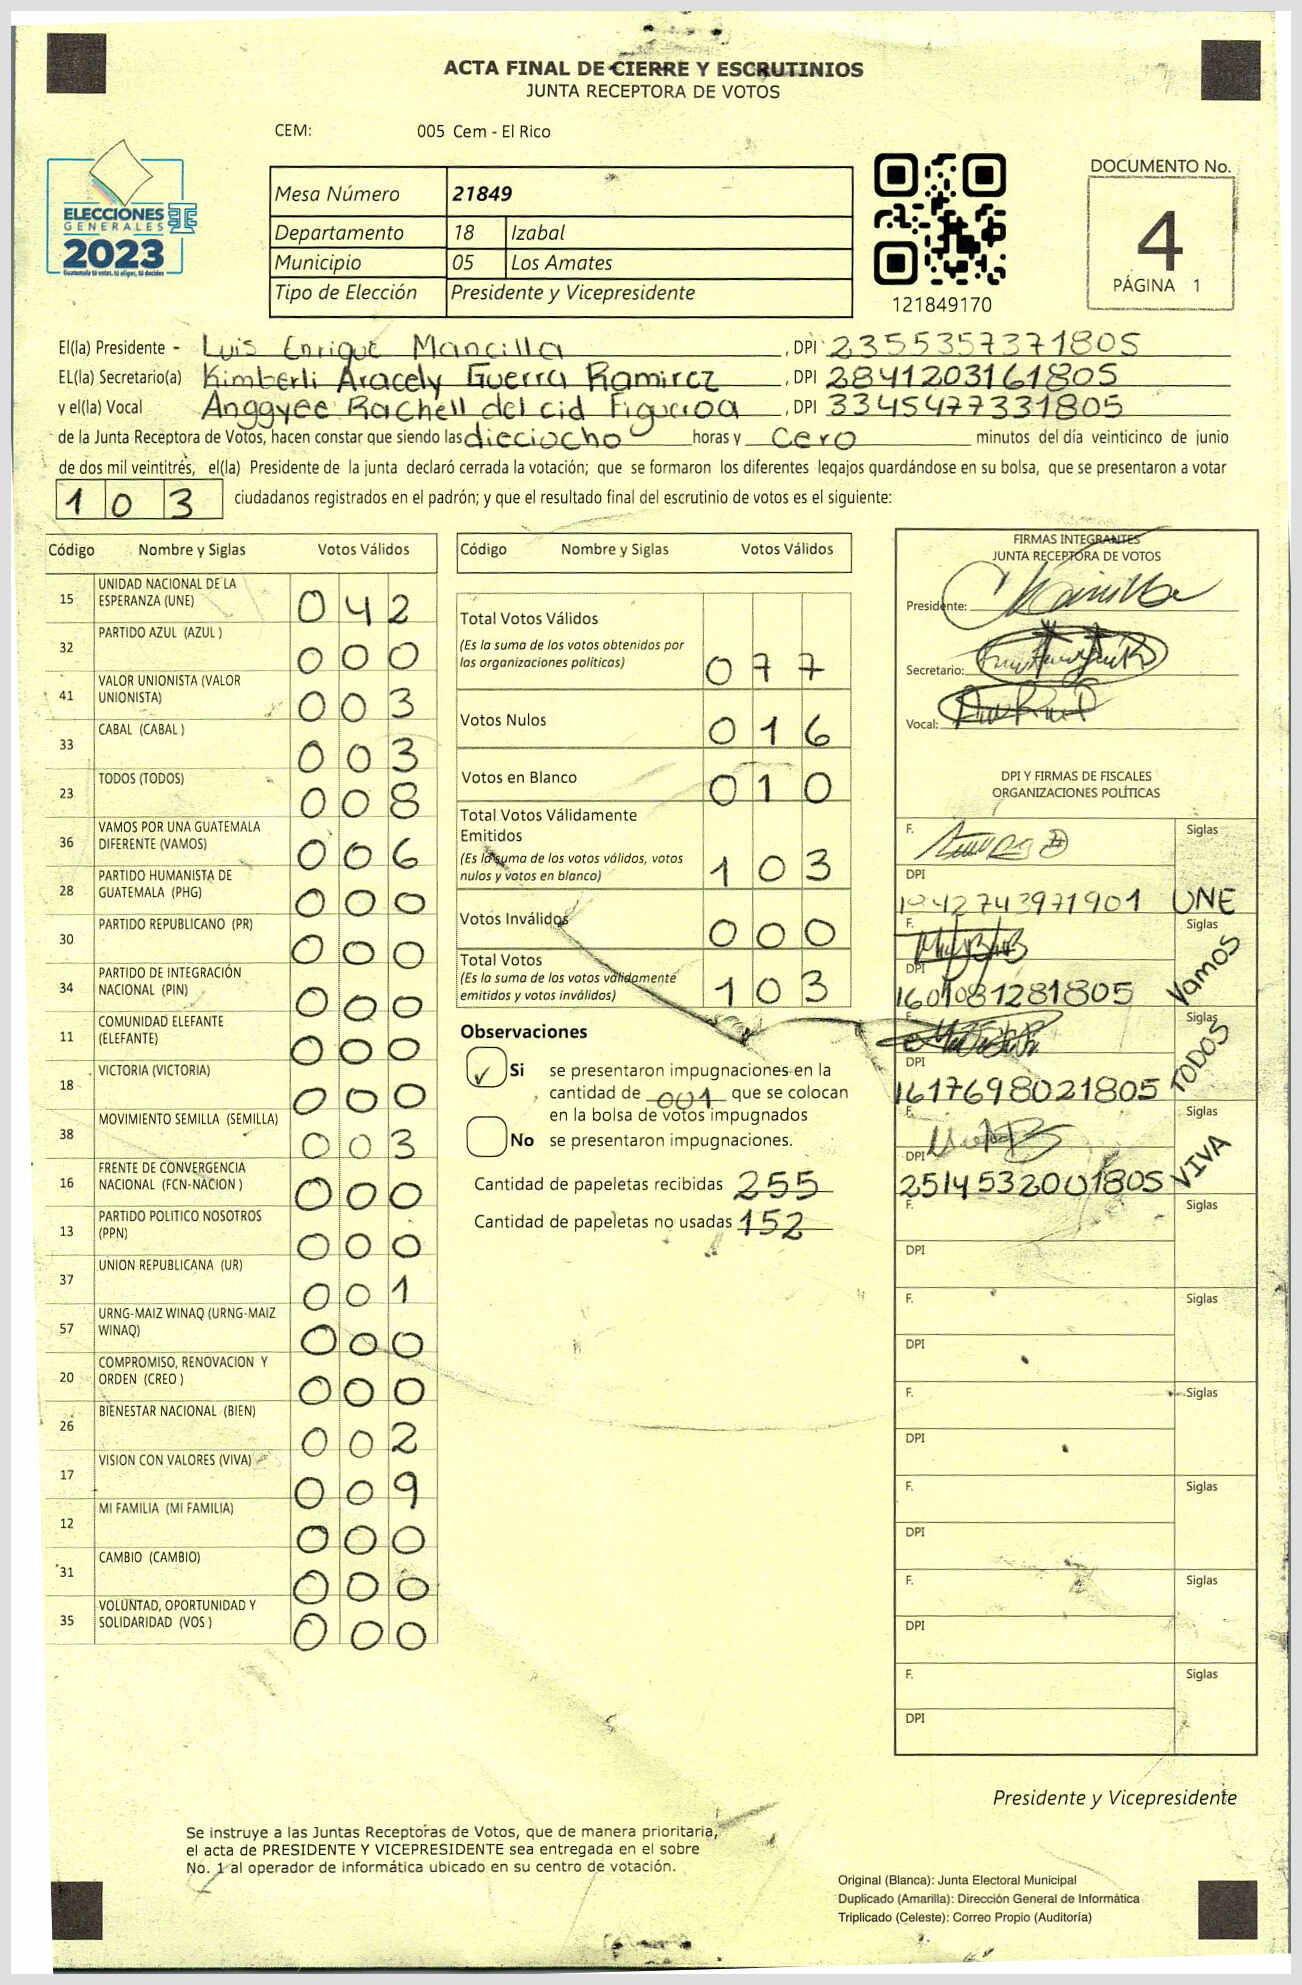 ACTA FINAL DE CIERRE Y ESCRUTINIOS
JUNTA RECEPTORA DE VOTOS
CEM: 005 Cem - El Rico
ELECCIONES
GENERALES
2023
Guatemala tú votas, tú eliges, tú decides
Mesa Número 21849
Departamento 18 Izabal
Municipio 05 Los Amates
Tipo de Elección Presidente y Vicepresidente
121849170
DOCUMENTO No.
4
PÁGINA 1
El(la) Presidente - Luis Enrique Mancilla, DPI 2355357371805
EL(la) Secretario(a) Kimberli Aracely Guerra Ramirez, DPI 2841203161805
y el(la) Vocal Anggyee Rachell del cid Figueroa, DPI 3345477331805
de la Junta Receptora de Votos, hacen constar que siendo las dieciocho horas y cero minutos del día veinticinco de junio
de dos mil veintitrés, el(la) Presidente de la junta declaró cerrada la votación; que se formaron los diferentes legajos guardándose en su bolsa, que se presentaron a votar
103 ciudadanos registrados en el padrón; y que el resultado final del escrutinio de votos es el siguiente:
Código Nombre y Siglas Votos Válidos
15 UNIDAD NACIONAL DE LA ESPERANZA (UNE) 042
32 PARTIDO AZUL (AZUL ) 000
41 VALOR UNIONISTA (VALOR UNIONISTA) 003
33 CABAL (CABAL ) 003
23 TODOS (TODOS) 008
36 VAMOS POR UNA GUATEMALA DIFERENTE (VAMOS) 006
28 PARTIDO HUMANISTA DE GUATEMALA (PHG) 000
30 PARTIDO REPUBLICANO (PR) 000
34 PARTIDO DE INTEGRACIÓN NACIONAL (PIN) 000
11 COMUNIDAD ELEFANTE (ELEFANTE) 000
18 VICTORIA (VICTORIA) 000
38 MOVIMIENTO SEMILLA (SEMILLA) 003
16 FRENTE DE CONVERGENCIA NACIONAL (FCN-NACION ) 000
13 PARTIDO POLITICO NOSOTROS (PPN) 000
37 UNION REPUBLICANA (UR) 001
57 URNG-MAIZ WINAQ (URNG-MAIZ WINAQ) 000
20 COMPROMISO, RENOVACION Y ORDEN (CREO ) 000
26 BIENESTAR NACIONAL (BIEN) 002
17 VISION CON VALORES (VIVA) 009
12 MI FAMILIA (MI FAMILIA) 000
31 CAMBIO (CAMBIO) 000
35 VOLUNTAD, OPORTUNIDAD Y SOLIDARIDAD (VOS ) 000
Código Nombre y Siglas Votos Válidos
Total Votos Válidos
(Es la suma de los votos obtenidos por
las organizaciones políticas) 077
Votos Nulos 016
Votos en Blanco 010
Total Votos Válidamente
Emitidos
(Es la suma de los votos válidos, votos
nulos y votos en blanco) 103
Votos Inválidos 000
Total Votos
(Es la suma de los votos válidamente
emitidos y votos inválidos) 103
Observaciones
✓ Si se presentaron impugnaciones en la
cantidad de 001 que se colocan
en la bolsa de votos impugnados
No se presentaron impugnaciones.
Cantidad de papeletas recibidas 255
Cantidad de papeletas no usadas 152
FIRMAS INTEGRANTES
JUNTA RECEPTORA DE VOTOS
Presidente:
Secretario:
Vocal:
DPI Y FIRMAS DE FISCALES
ORGANIZACIONES POLÍTICAS
F. Siglas
DPI
UNE
F. Siglas
DPI
1601081281805 Vamos
F. Siglas
DPI
1617698021805 TODOS
F. Siglas
DPI
2514532001805 VIVA
F. Siglas
DPI
F. Siglas
DPI
F. Siglas
DPI
F. Siglas
DPI
F. Siglas
DPI
F. Siglas
DPI
Presidente y Vicepresidente
Se instruye a las Juntas Receptoras de Votos, que de manera prioritaria,
el acta de PRESIDENTE Y VICEPRESIDENTE sea entregada en el sobre
No. 1 al operador de informática ubicado en su centro de votación.
Original (Blanca): Junta Electoral Municipal
Duplicado (Amarilla): Dirección General de Informática
Triplicado (Celeste): Correo Propio (Auditoría)